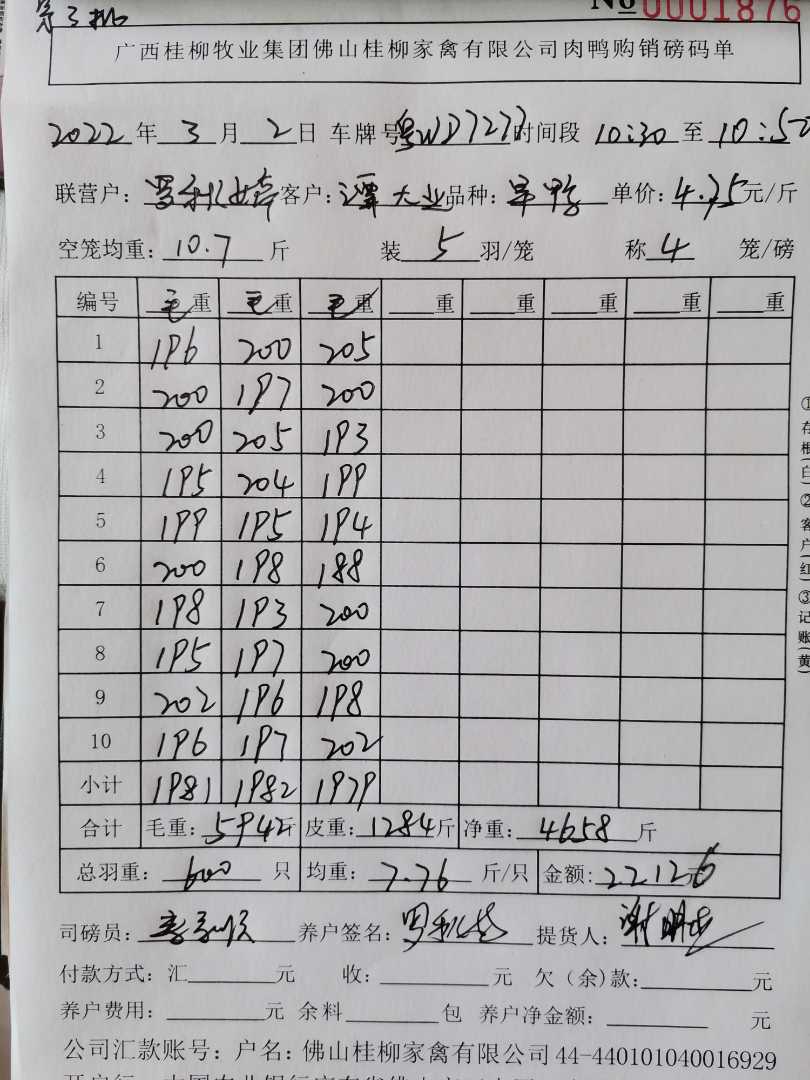 No 0001876
广西桂柳牧业集团佛山桂柳家禽有限公司肉鸭购销磅码单
2022 年 3 月 2 日 车牌号 粤WD7277 时间段 10:30 至 10:52
联营户: 罗利婷 客户: 谭大业 品种: 单价: 4.75 元/斤
空笼均重: 10.7 斤 装 5 羽/笼 称 4 笼/磅
编号 毛重 毛重 毛重 重 重 重 重 重
1 196 200 205
2 200 197 200
3 200 205 193
4 195 204 199
5 199 195 194
6 200 198 188
7 198 193 200
8 195 197 200
9 202 196 198
10 196 197 202
小计 1981 1982 1979
合计 毛重: 5942 斤 皮重: 1284 斤 净重: 4658 斤
总羽重: 600 只 均重: 7.76 斤/只 金额: 22126 元
司磅员: 养户签名: 提货人:
付款方式: 汇 元 收: 元 欠(余)款: 元
养户费用: 元 余料 包 养户净金额: 元
公司汇款账号: 户名: 佛山桂柳家禽有限公司 44-440101040016929
①存根(白)②客户(红)③记账(黄)